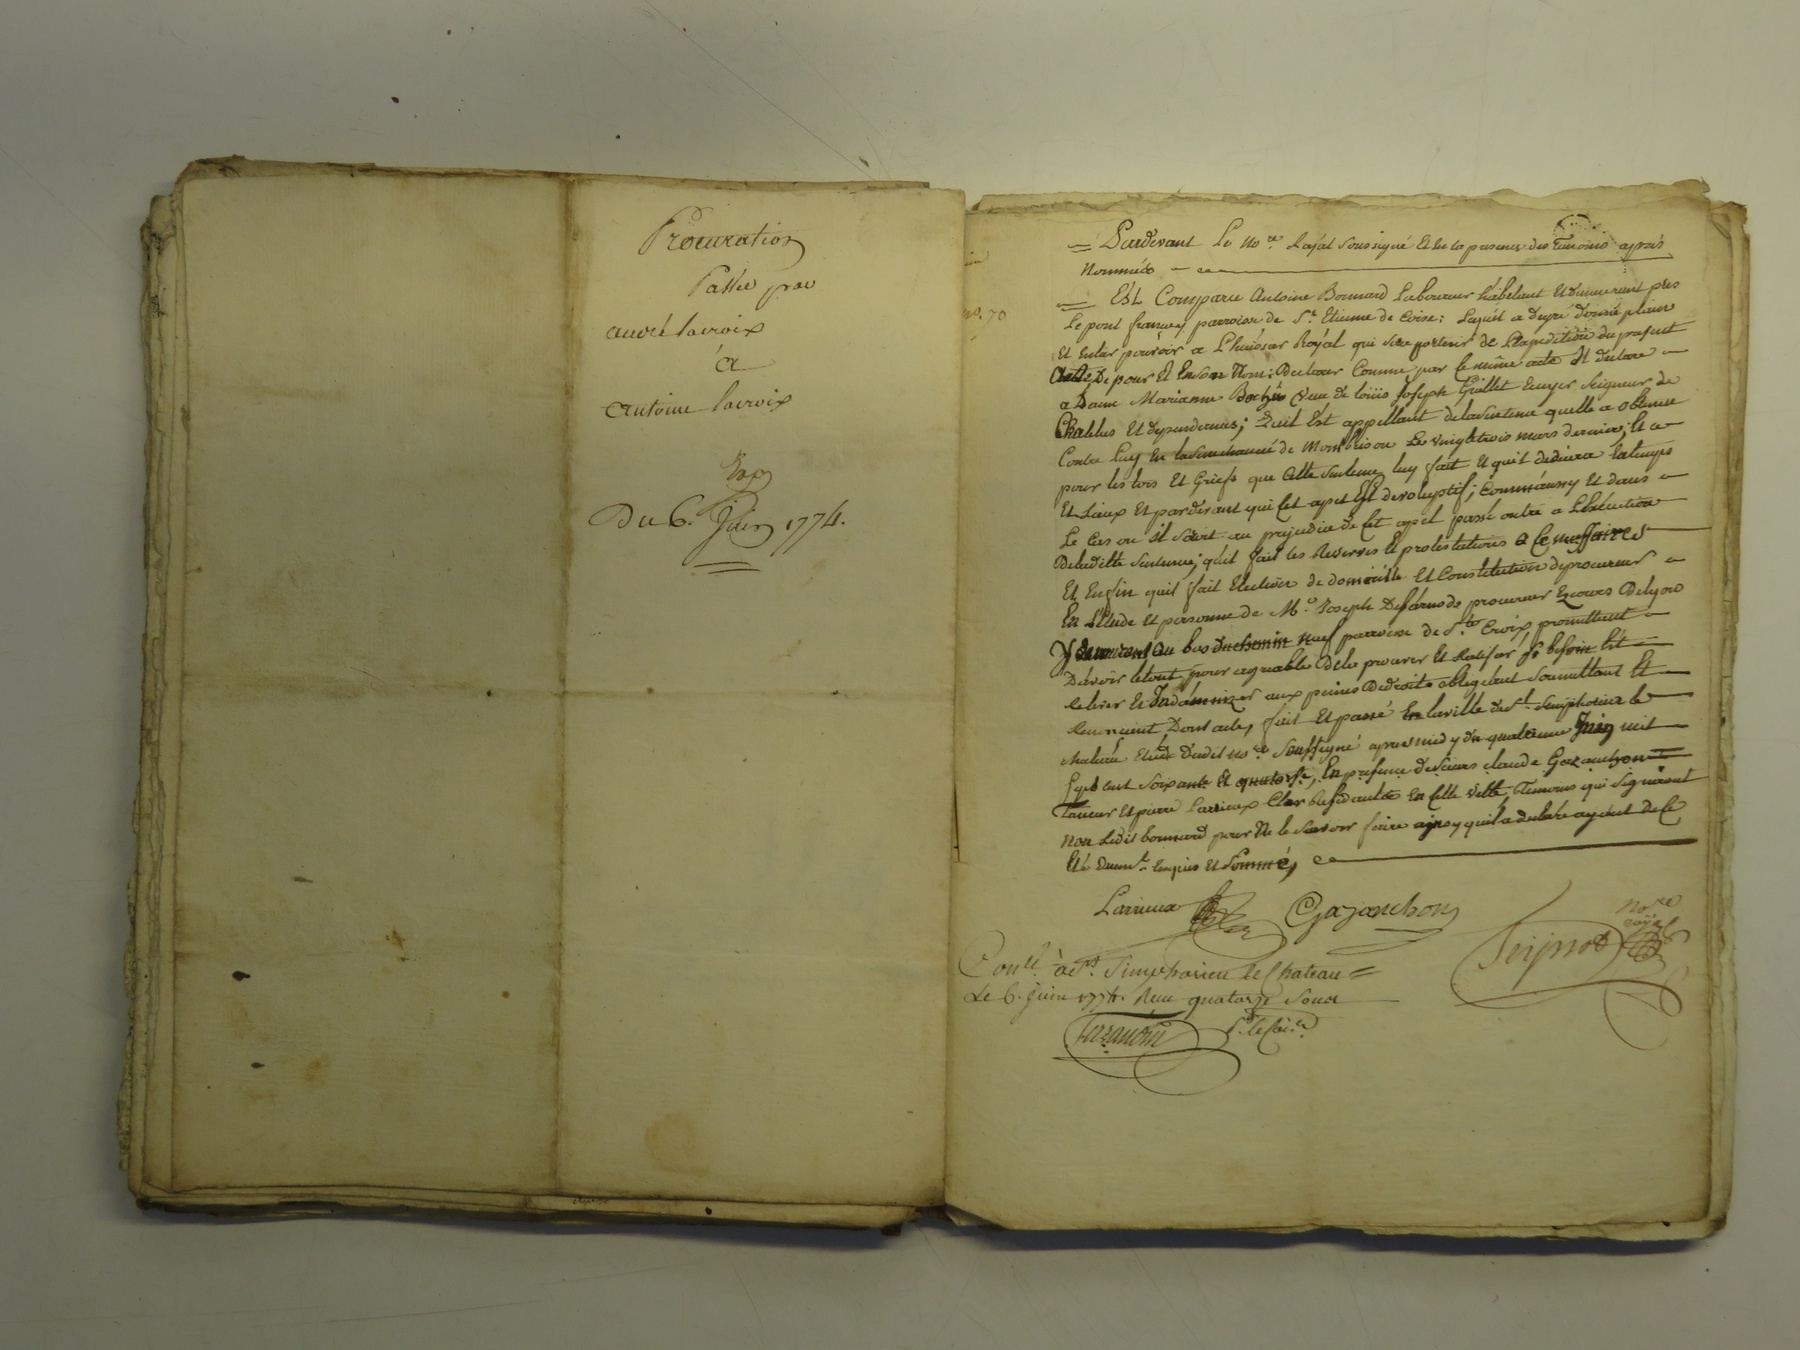 Procuration
Passée par
andré lacroix
à
antoine lacroix
Du 6. Juin 1774.
no. 70
Pardevant Le no.re Royal soussigné Et En la presence des Temoins aprés
Nommés
Est Comparu Antoine Bonnard Laboureur habitant Et demeurant pres
Le pont francey parroisse de S.t Etienne de Coise: Lequel a de gré donné plain
Et Entier pouvoir a L'huissier Royal qui sera porteur de L'expedition du present
Acte De pour Et En son Nom: Declarer Comme par Ce même acte Il declare
a Dame Marianne Veuve de loüis Joseph Guillet Ecuyer Seigneur de
Chatelus Et dependances; Qu'il Est appellant de la Sentence quelle a obtenue
Contre Luy En la Senechaucé de Montbrison Le vingt trois mars dernier; Et ce
pour les tors Et Griefs que Cette Sentence luy fait Et qu'il deduira En temps
Et Lieux Et pardevant qui Cet apel Est devoluptif; Et dans
Le Cas ou il Seroit au prejudice de Cet apel passé outre a L'Execution
De la ditte Sentence; qu'il fait les Reserves Et protestations a Ce necessaires
Et Enfin qu'il fait Election de domicille Et Constitution de procureur
En L'Etude Et personne de M.e Joseph procureur Ez cours De lyon
Y demeurant Au bas du chemin neuf parroisse de S.te Croix promettant
D'avoir le tout pour agreable De le prouver Et Ratifier Si besoin Est
relever Et Indamnizer aux peines De droits obligeant Soumettant Et
Renonçant, Dont acte, fait Et passé En la ville de S.t Simphorien le
chateau Etude Dudit no.re Soussigné apres midy du quatrieme Juin mil
Sept cent Soixante Et quatorse, En presence de Sieurs claude Gazanchon
Taneur Et pierre Larrieux Clerc Residants En Cette ville, Temoins qui Signeront
Non Ledit bonnard pour Ne le Savoir faire ainsy quil a declaré ayant De Ce
Eté Duem.t Enquis Et Sommé,
Larrieux Gazanchon
no.re
royal
Con.lé à S.t Simphorien le Chateau
Le 6. Juin 1774. Reçu quatorze Sous